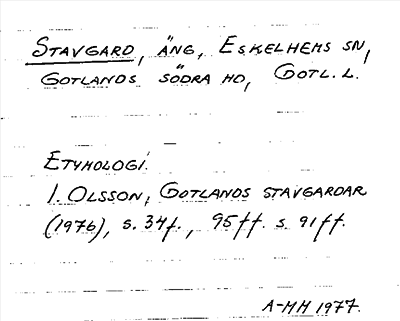 STAVGARD, ÄNG, ESKELHEMS SN,
GOTLANDS SÖDRA HD, GOTL. L.
ETYMOLOGI.
I. OLSSON, GOTLANDS STAVGARDAR
(1976), s. 34f., 95ff. s. 91ff.
A-MH 1977.